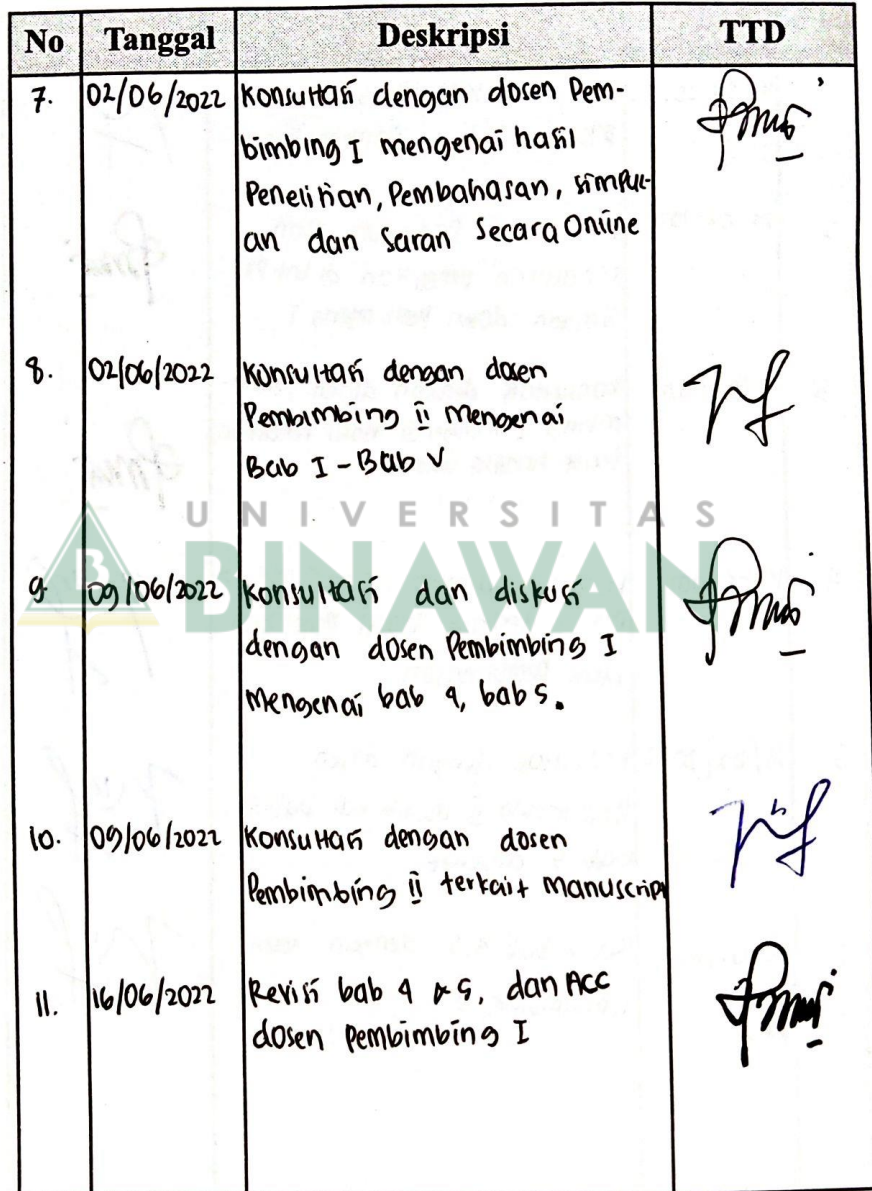 No Tanggal Deskripsi TTD
7. 02/06/2022 Konsultasi dengan dosen Pem-
bimbing I mengenai hasil
Penelitian, Pembahasan, simpul-
an dan Saran Secara Online
8. 02/06/2022 Konsultasi dengan dosen
Pembimbing ii Mengenai
Bab I - Bab V
UNIVERSITAS
BINAWAN
9 09/06/2022 Konsultasi dan diskusi
dengan dosen Pembimbing I
Mengenai bab 4, bab 5.
10. 09/06/2022 Konsultasi dengan dosen
Pembimbing ii terkait Manuscript
11. 16/06/2022 Revisi bab 4 & 5, dan ACC
dosen Pembimbing I